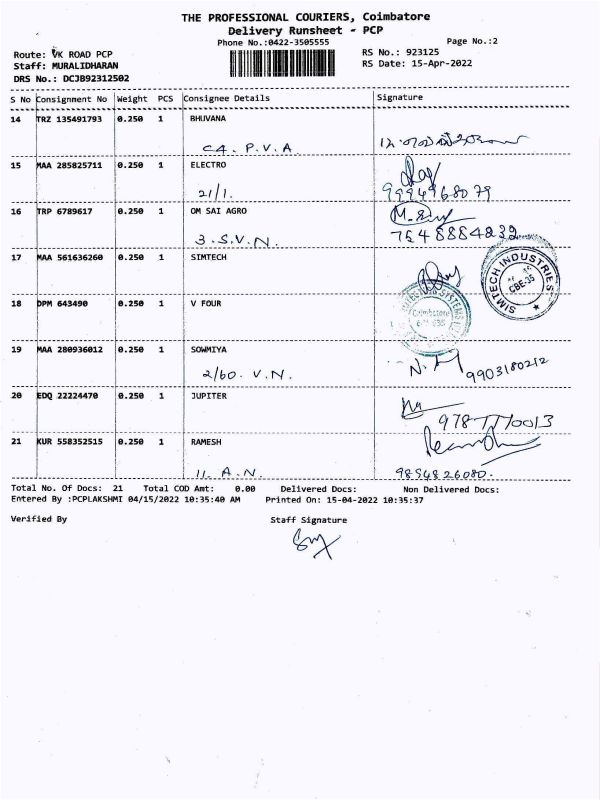 THE PROFESSIONAL COURIERS, Coimbatore
Delivery Runsheet - PCP
Phone No.:0422-3505555
Page No.:2
Route: VK ROAD PCP
RS No.: 923125
Staff: MURALIDHARAN
RS Date: 15-Apr-2022
DRS No.: DCJB92312502
S No Consignment No Weight PCS Consignee Details Signature
14 TRZ 135491793 0.250 1 BHUVANA
C4. P.V.A
15 MAA 285825711 0.250 1 ELECTRO
21/1. 9994968079
16 TRP 6789617 0.250 1 OM SAI AGRO
3.S.V.N. 7548884232
17 MAA 561636260 0.250 1 SIMTECH
SIMTECH INDUSTRIES
CBE-35
18 DPM 643490 0.250 1 V FOUR
Coimbatore
19 MAA 280936012 0.250 1 SOWMIYA
2/60. V.N. 9903180212
20 EDQ 22224470 0.250 1 JUPITER
9787770013
21 KUR 558352515 0.250 1 RAMESH
11. A.N. 9894826080.
Total No. Of Docs: 21 Total COD Amt: 0.00 Delivered Docs: Non Delivered Docs:
Entered By :PCPLAKSHMI 04/15/2022 10:35:40 AM Printed On: 15-04-2022 10:35:37
Verified By Staff Signature